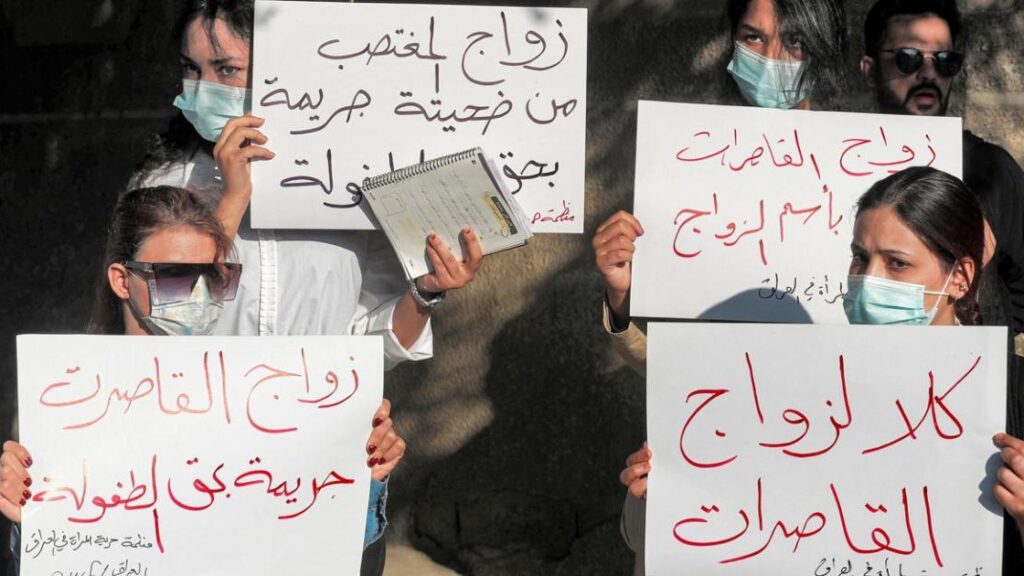 زواج المغتصب
من ضحيتة جريمة
بحق الطفولة
منظمة حر
زواج القاصرات
بأسم الزواج
المرأة في العراق
زواج القاصرت
جريمة بحق الطفولة
منظمة حرية المرأة في العراق
العراق
كلا لزواج
القاصرات
في العراق